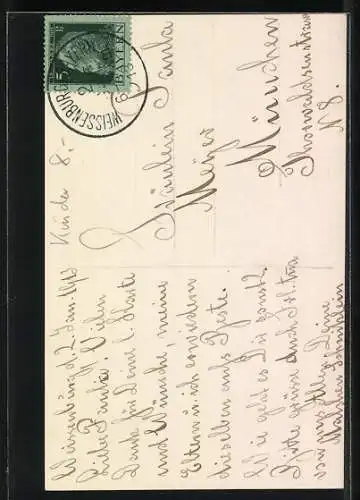 Weissenburg d. 2. Jan. 1913
Liebe Paula! Vielen
Dank für Deine l. Karte
und Wünsche, meine
Eltern u. ich erwidern
dieselben aufs Beste.
Wie geht es Dir sonst?
Bitte grüsse auch
von uns allen Deine
Fräulein Paula
Meyer
München
Thorwaldsenstrasse
N 8.
Kinder 8.-
WEISSENBURG
BAYERN
5